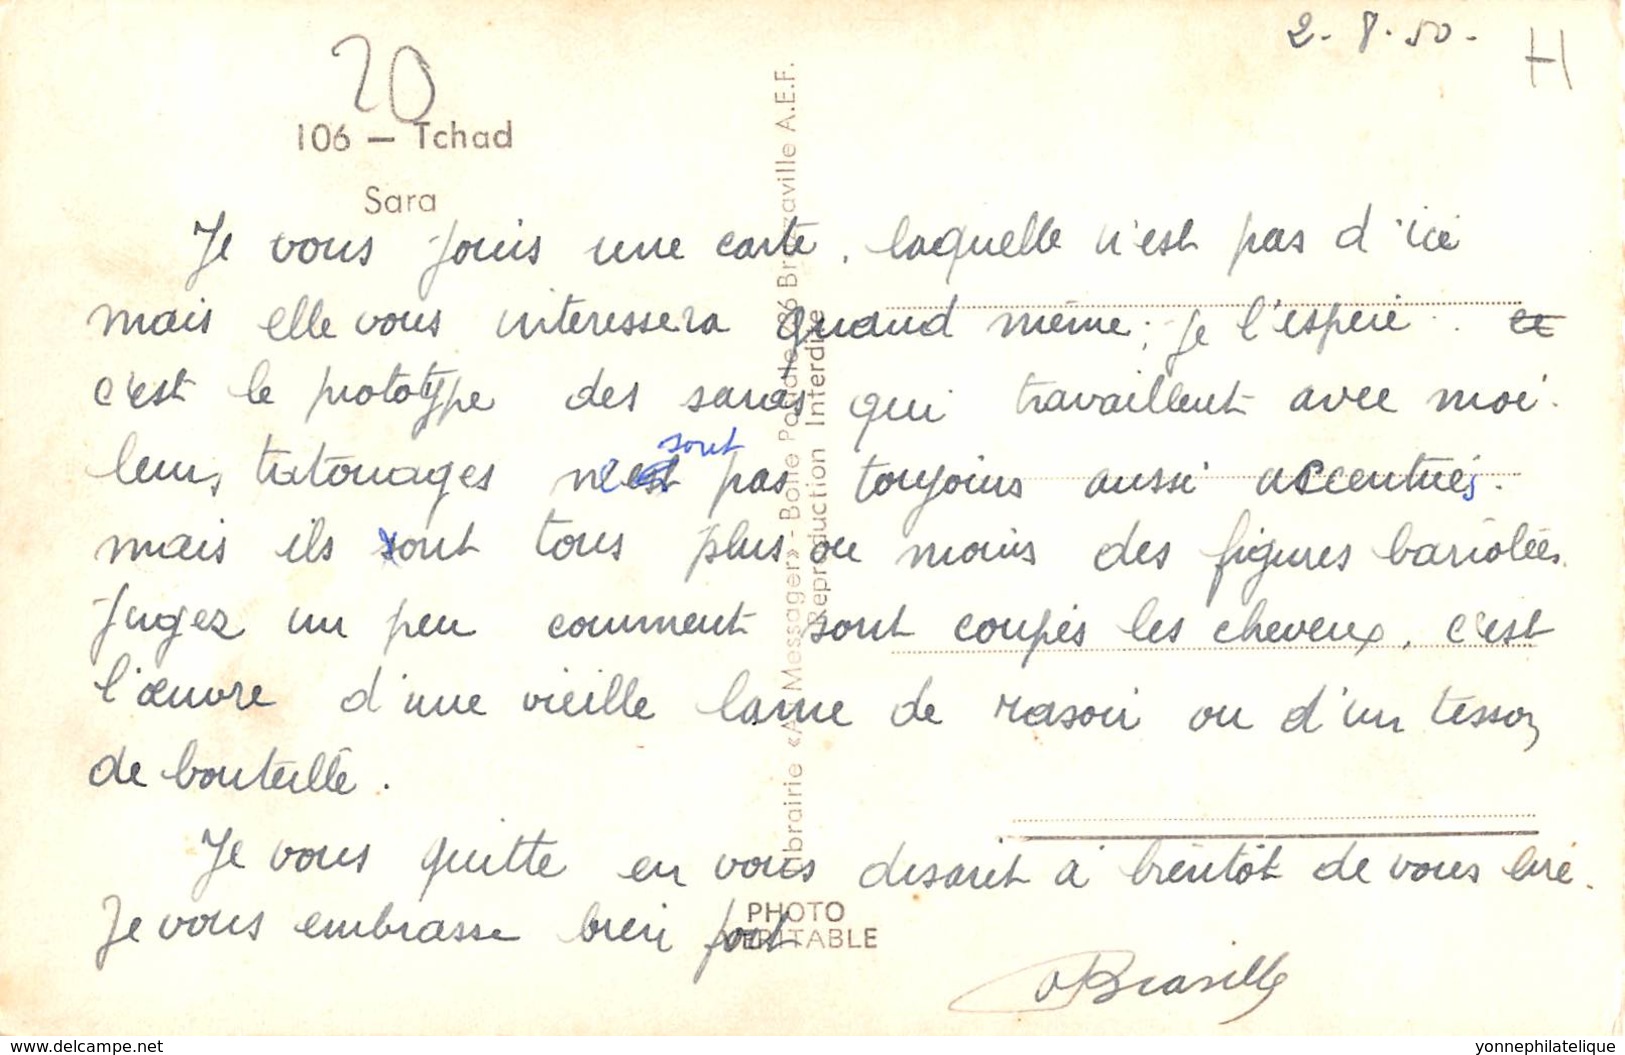 2-8-50-
H
20
106 — Tchad
Sara
Je vous joins une carte, laquelle n'est pas d'ici
mais elle vous interessera quand même, je l'espere. et
c'est le prototype des saras qui travaillent avec moi.
leurs tatouages ne sont pas toujours aussi accentués.
mais ils sont tous plus ou moins des figures bariolées.
Jugez un peu comment sont coupés les cheveux, c'est
l'œuvre d'une vieille lame de rasoir ou d'un tesson
de bouteille.
Je vous quitte en vous disant à bientôt de vous lire.
Je vous embrasse bien fort
Librairie «Au Messager» - Boîte Postale 86 Brazzaville A.E.F.
Reproduction Interdite
PHOTO
VERITABLE
www.delcampe.net
yonnephilatelique